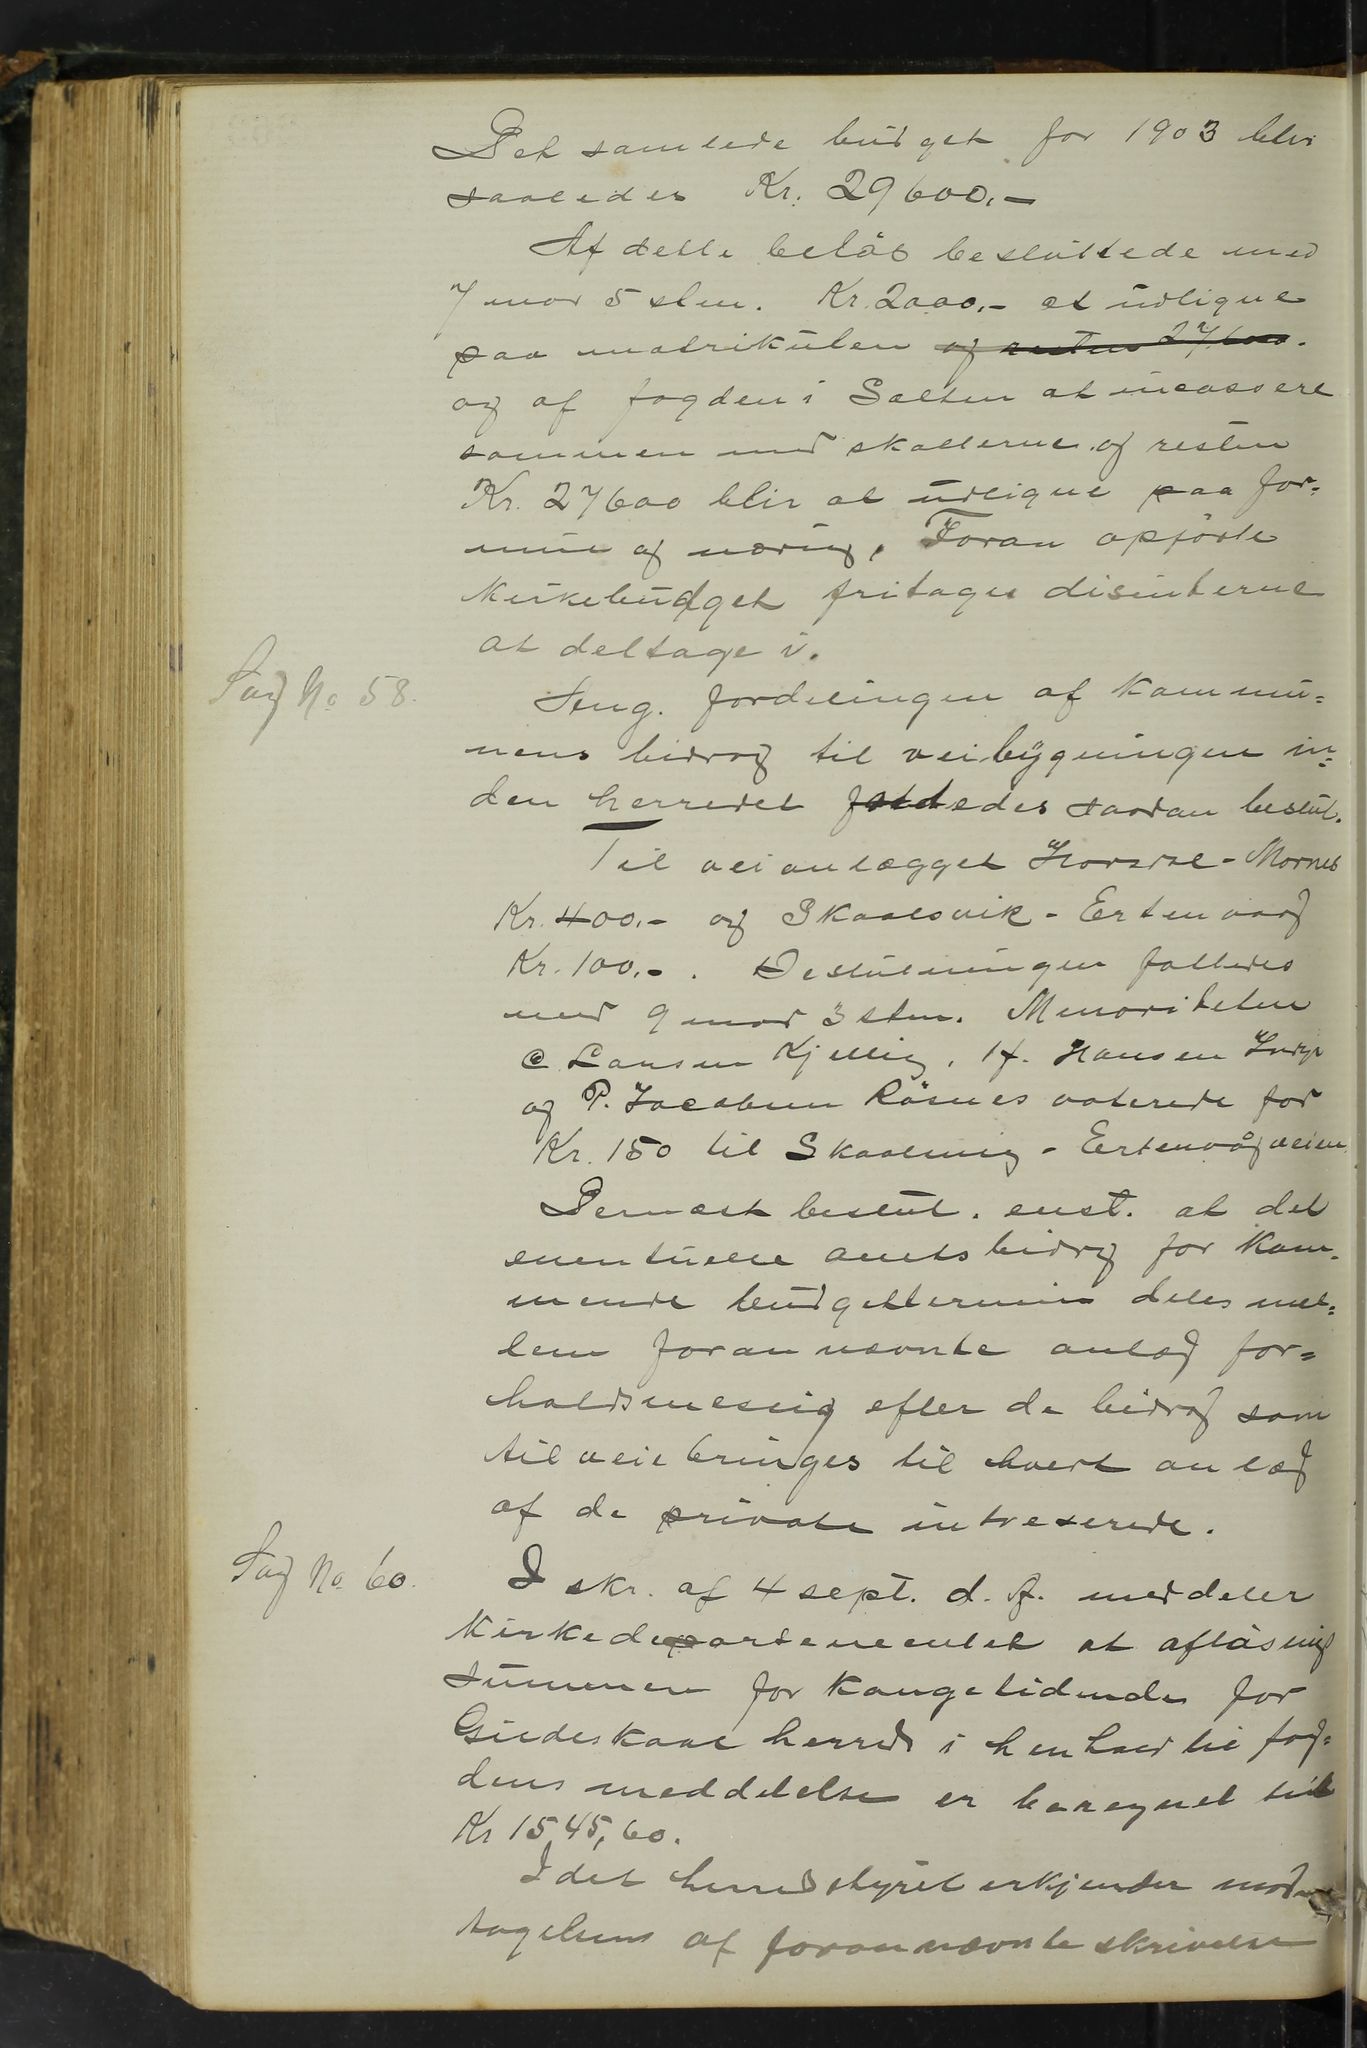 Det samlede budget for 1903 blir
saaledes Kr. 29600.-
Af dette beløb besluttede med
7 mod 5 stm. Kr. 2000.- at udligne
paa matrikulen og resten 27600.
og af fogden i Salten at incassere
sammen med skatterne og resten
Kr. 27600 blir at udligne paa for=
mue og næring. Foran opførte
Kirkebudget fritages disinterne
at deltage i.
Sag No 58.
Ang. fordelingen af kommu=
nens bidrag til veibygningen in=
den herredet fattedes saadan beslut.
Til veianlægget - Mornes
Kr. 400.- og Skaalsvik - Ertenvaag
Kr. 100.-. Beslutningen fattedes
med 9 mod 3 stm. Menoriteten
C Larsen Kjelling, H. Hansen
og P. Jacobsen Røsnes voterede for
Kr. 150 til - Ertenvågveien
Dernæst beslut. enst. at det
eventuelle amtsbidrag for kom=
mende budgettermin deles mel=
lem forannævnte anlæg for=
holdsmessig efter de bidrag som
tilveiebringes til hvert anlæg
af de private intreserede.
Sag No 60.
I skr. af 4 sept. d. A. meddeler
Kirkedepartementet at afløsning
summen for Kongetidende for
Gildeskaal herred i henhold til fog=
dens meddelelse er beregnet til
Kr 1545,60.
Idet herredstyret erkjender mod=
tagelsens af forannævnte skrivelse